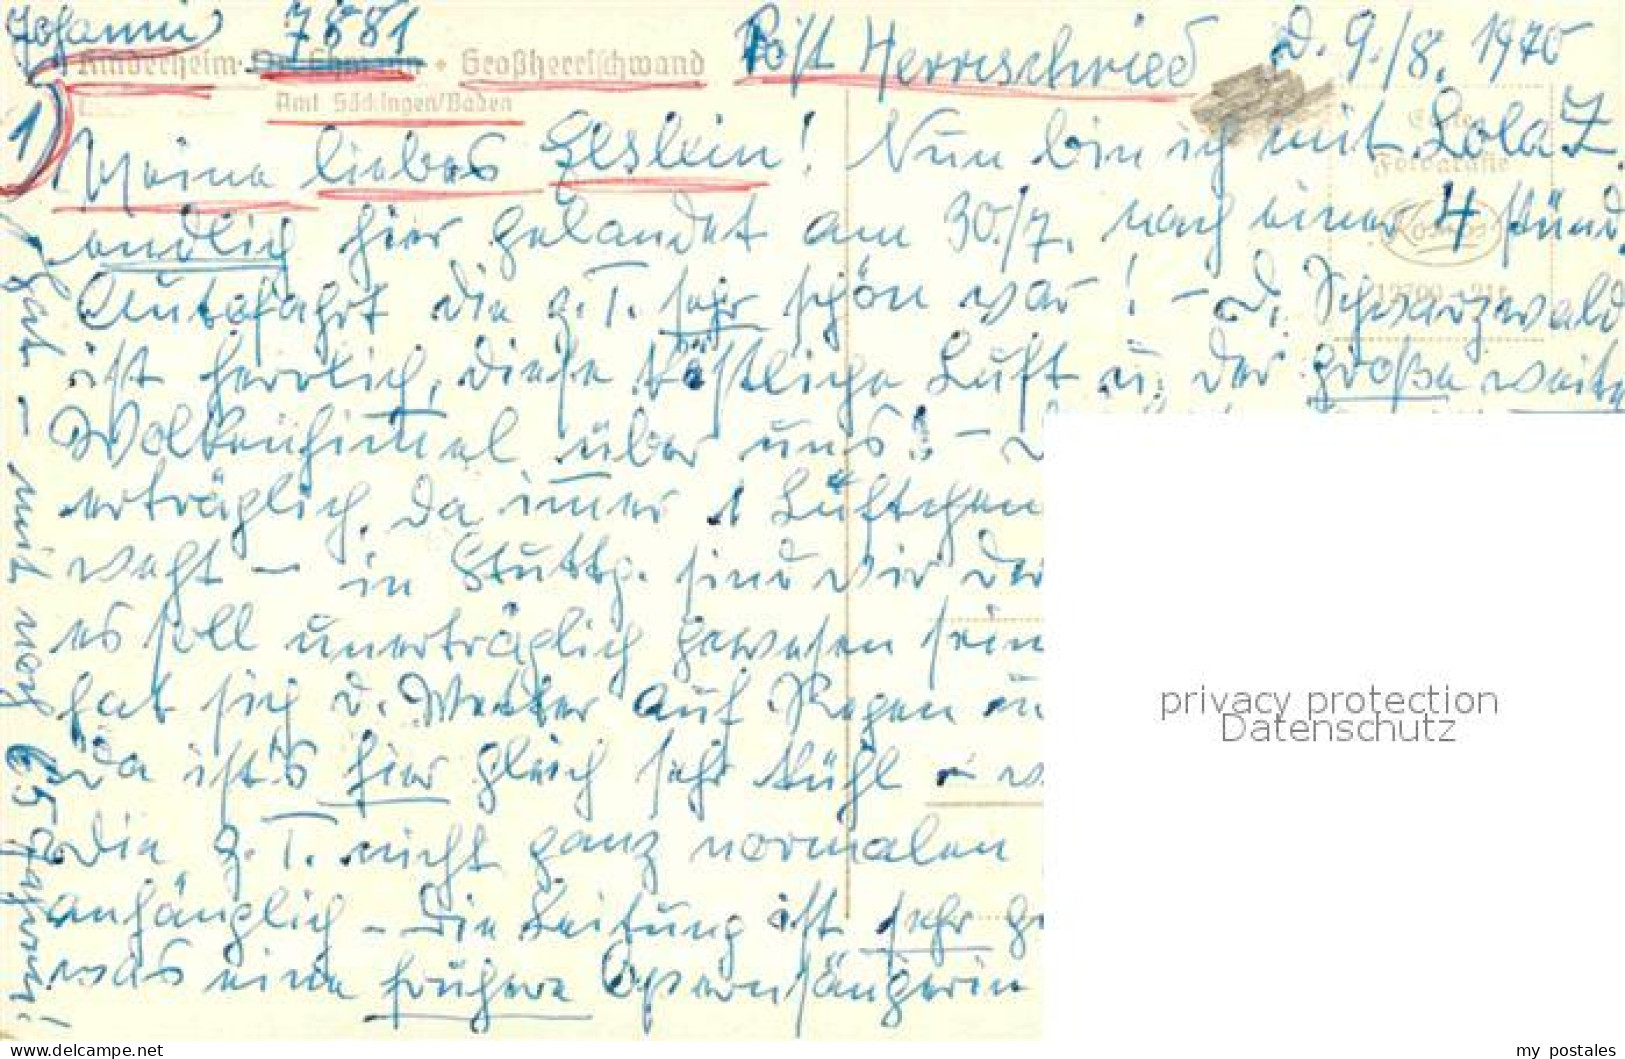 Johanni 7881 Post Herrischried d. 9./8. 1970
Kinderheim Dr. Ehmann • Großherrischwand
Amt Säckingen/Baden
1) Meine liebes Elslein! Nun bin ich mit Lola Z.
Echte
Fotografie
endlich hier gelandet am 30./7. nach einer 4 stünd.
Autofahrt die z.T. sehr schön war! – D. Schwarzwald
ist herrlich, diese köstliche Luft u. der große weite
Wolkenhimmel über uns! –
erträglich, da immer 1 Lüftchen
weht – in Stuttg. sind wir der
es soll unerträglich gewesen sein
hat sich d. Wetter auf Regen
Da ist's hier gleich sehr kühl
die z.T. nicht ganz normalen
anhänglich – Die Leitung ist sehr
was eine frühere Opernsängerin
hat – mit noch 65 Jahren!
privacy protection
Datenschutz
www.delcampe.net
my_postales